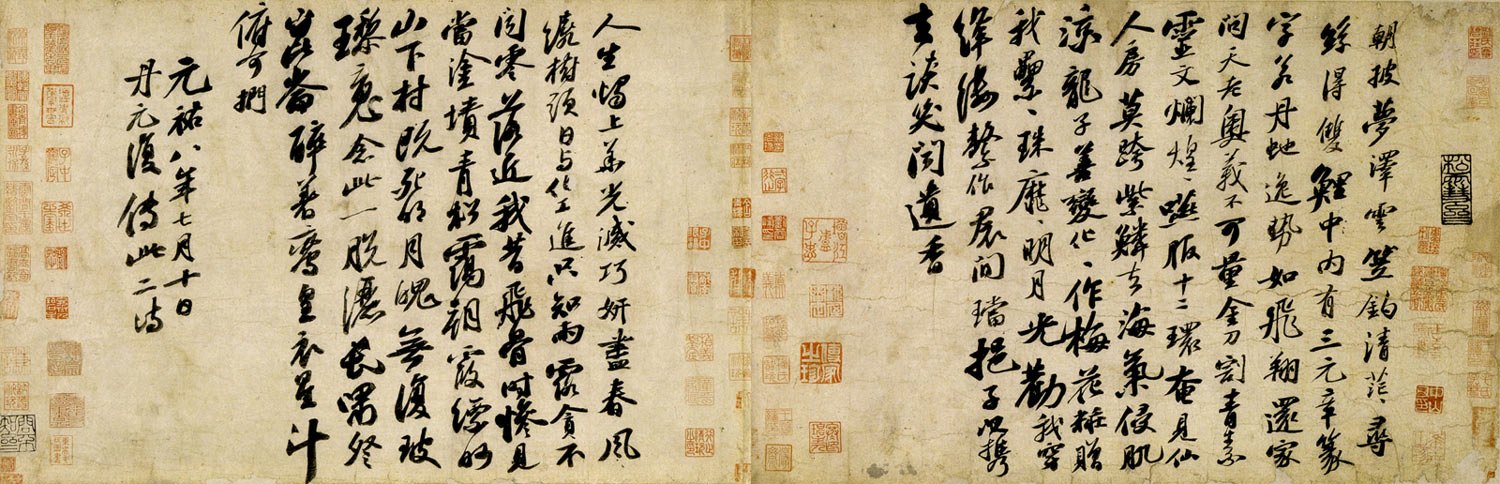 朝披夢澤雲笠釣清茫〻尋
絲得雙鯉中內有三元章篆
字若丹虵逸勢如飛翔還家
問天老奧義不可量金刀割青素
靈文爛煌〻嚥服十二環奄見仙
人房莫跨紫鱗去海氣侵肌
涼龍子善變化〻作梅花糚贈
我纍〻珠靡〻明月光勸我穿
絳縷繫作裙間璫挹子以攜
去談笑聞遺香
人生燭上華光滅巧妍盡春風
繞樹頭日与化工進只知雨露貪不
聞零落近我昔飛骨時慘見
當塗墳青松靄朝霞縹緲
山下村既死明月魄無復玻
瓈魂念此一脫灑長嘯登
崑崙醉著鸞皇衣星斗
俯可捫
元祐八年七月十日
丹元復傳此二詩